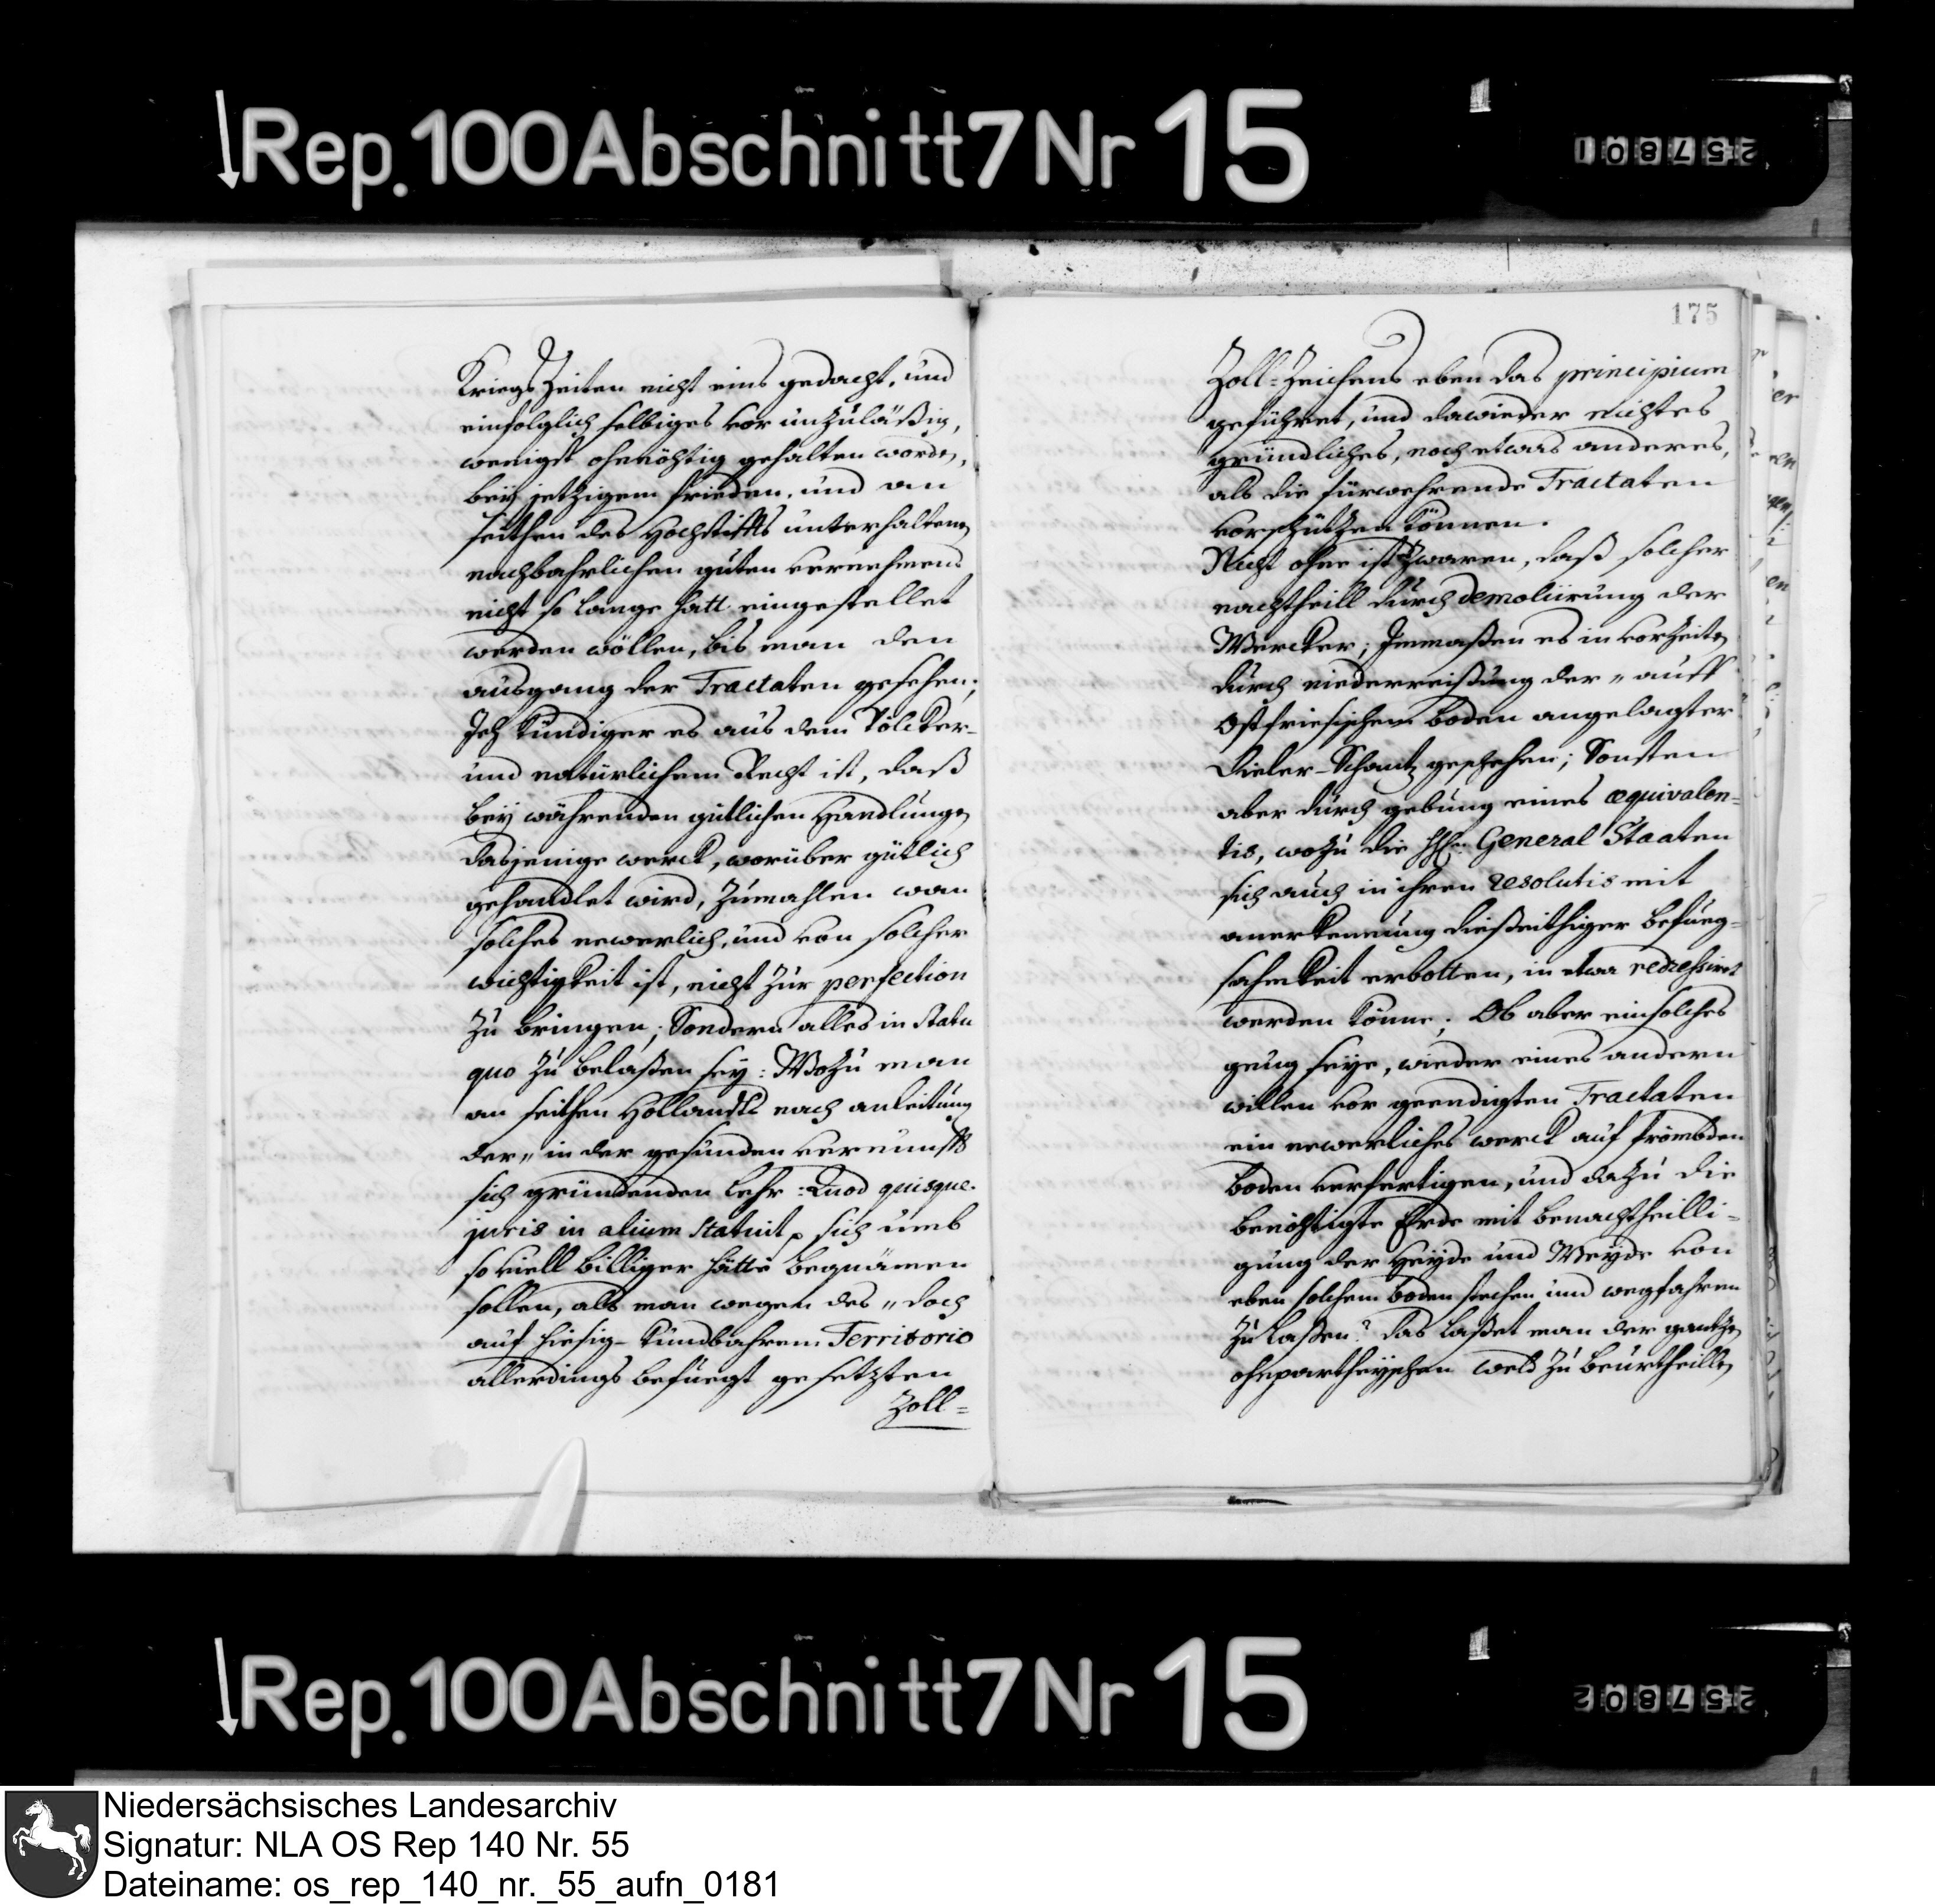 Rep. 100 Abschnitt 7 Nr 15
257801
Kriegs Zeiten nicht eins gedacht, und
einfolglich selbiges vor unzuläßig,
wenigst ohnnöhtig gehalten worden,
bey jetzigem frieden, und an
seithen des Hochstiffts unterhaltenen
nachbahrlichen guten vernehmens
nicht so lange hatt eingestellet
werden wöllen, bis man den
ausgang der Tractaten gesehen;
Je kündiger es aus dem Völcker-
und natürlichem Recht ist, daß
bey währenden gütlichen Handlungen
dasjenige werck, worüber gütlich
gehandlet wird, zumahlen wan
solches newerlich, und von solcher
wichtigkeit ist, nicht zur perfection
zu bringen; Sondern alles in statu
quo zu belaßen sey: Wozu man
an seithen Hollandts nach anleitung
der „ in der gesunden vernunfft
sich gründenden Lehr: Quod quisque
juris in alium statuit, sich umb
so viell billiger hätte bequämen
sollen, als man wegen des „ doch
auf hiesig-kundbahrem Territorio
allerdings befuegt gesetzten
Zoll=
175
Zoll=Zeichens eben das principium
geführet, und dawieder nichtes
gründliches, noch etwas anderes,
als die fürwehrende Tractaten
vorschützen können.
Nicht ohne ist zwaren, daß solcher
nachtheill durch demoliirung der
Wercker; Immaßen es in vorzeiten
durch niederreißung der „ auff
Ostfriesischem boden angelagter
Dieler-Schantz geschehen; Sonsten
aber durch gebung eines æquivalen=
tis, wozu die HHn. General Staaten
sich auch in ihren resolutis mit
anerkennung dießeithiger befueg=
sahmkeit erbotten, in etwa redressirt
werden könne; Ob aber ein solches
gnug seye, wieder eines andern
willen vor geendigten Tractaten
ein newerliches werck auf frömbden
boden verfertigen, und dazu die
benöhtigte Erde mit benachtheilli=
gung der Heyde und Weyde von
eben solchem boden stechen und wegfahren
zu laßen? das laßet man der gantzen
ohnpartheyschen weld zu beurtheillen
Rep. 100 Abschnitt 7 Nr 15
257802
Niedersächsisches Landesarchiv
Signatur: NLA OS Rep 140 Nr. 55
Dateiname: os_rep_140_nr._55_aufn_0181